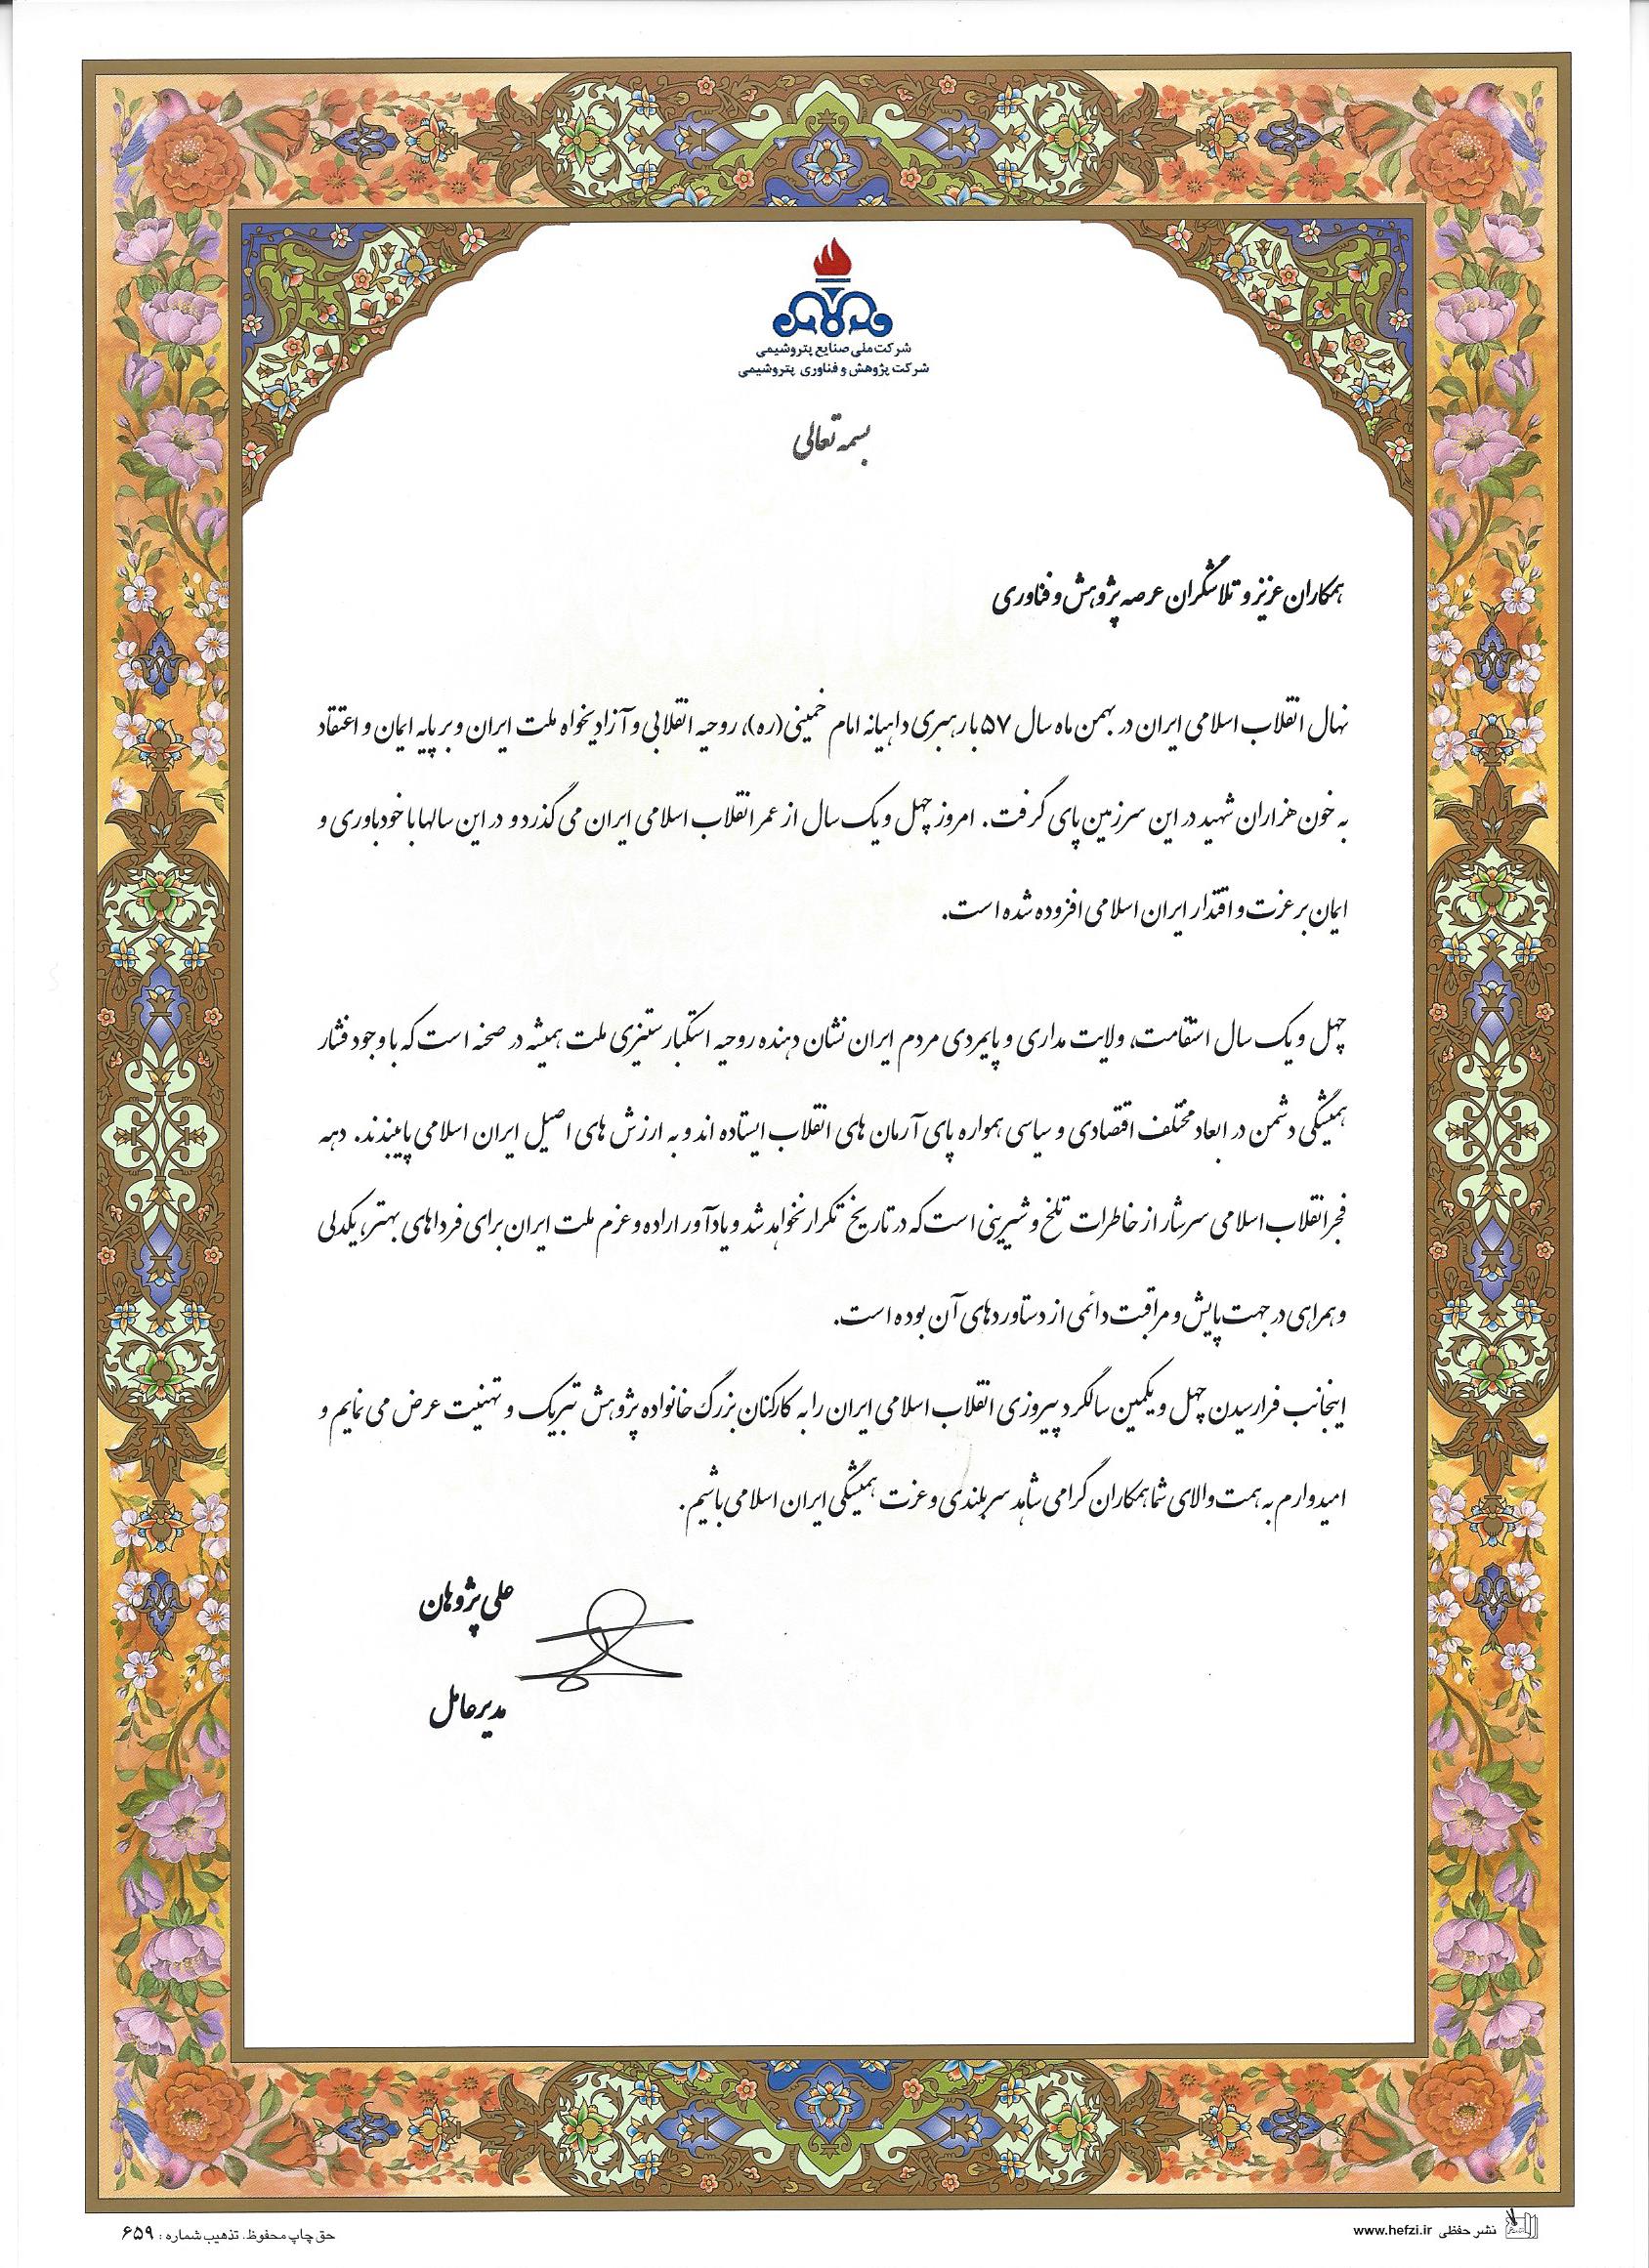 شرکت ملی صنایع پتروشیمی
شرکت پژوهش و فناوری پتروشیمی
بسمه تعالی
همکاران عزیز و تلاشگران عرصه پژوهش و فناوری
نهال انقلاب اسلامی ایران در بهمن ماه سال ۵۷ با رهبری داهیانه امام خمینی(ره)، روحیه انقلابی و آزادیخواه ملت ایران و بر پایه ایمان و اعتقاد
به خون هزاران شهید در این سرزمین پای گرفت. امروز چهل و یک سال از عمر انقلاب اسلامی ایران می گذرد و در این سالها با خودباوری و
ایمان بر عزت و اقتدار ایران اسلامی افزوده شده است.
چهل و یک سال استقامت، ولایت مداری و پایمردی مردم ایران نشان دهنده روحیه استکبار ستیزی ملت همیشه در صحنه است که با وجود فشار
همیشگی دشمن در ابعاد مختلف اقتصادی و سیاسی همواره پای آرمان های انقلاب ایستاده اند و به ارزش های اصیل ایران اسلامی پایبندند. دهه
فجر انقلاب اسلامی سرشار از خاطرات تلخ و شیرینی است که در تاریخ تکرار نخواهد شد و یادآور اراده و عزم ملت ایران برای فرداهای بهتر، یکدلی
و همراهی در جهت پایش و مراقبت دائمی از دستاوردهای آن بوده است.
اینجانب فرارسیدن چهل و یکمین سالگرد پیروزی انقلاب اسلامی ایران را به کارکنان بزرگ خانواده پژوهش تبریک و تهنیت عرض می نمایم و
امیدوارم به همت والای شما همکاران گرامی شاهد سربلندی و عزت همیشگی ایران اسلامی باشیم.
علی پژوهان
مدیرعامل
نشر حفظی www.hefzi.ir
حق چاپ محفوظ. تذهیب شماره : ۶۵۹